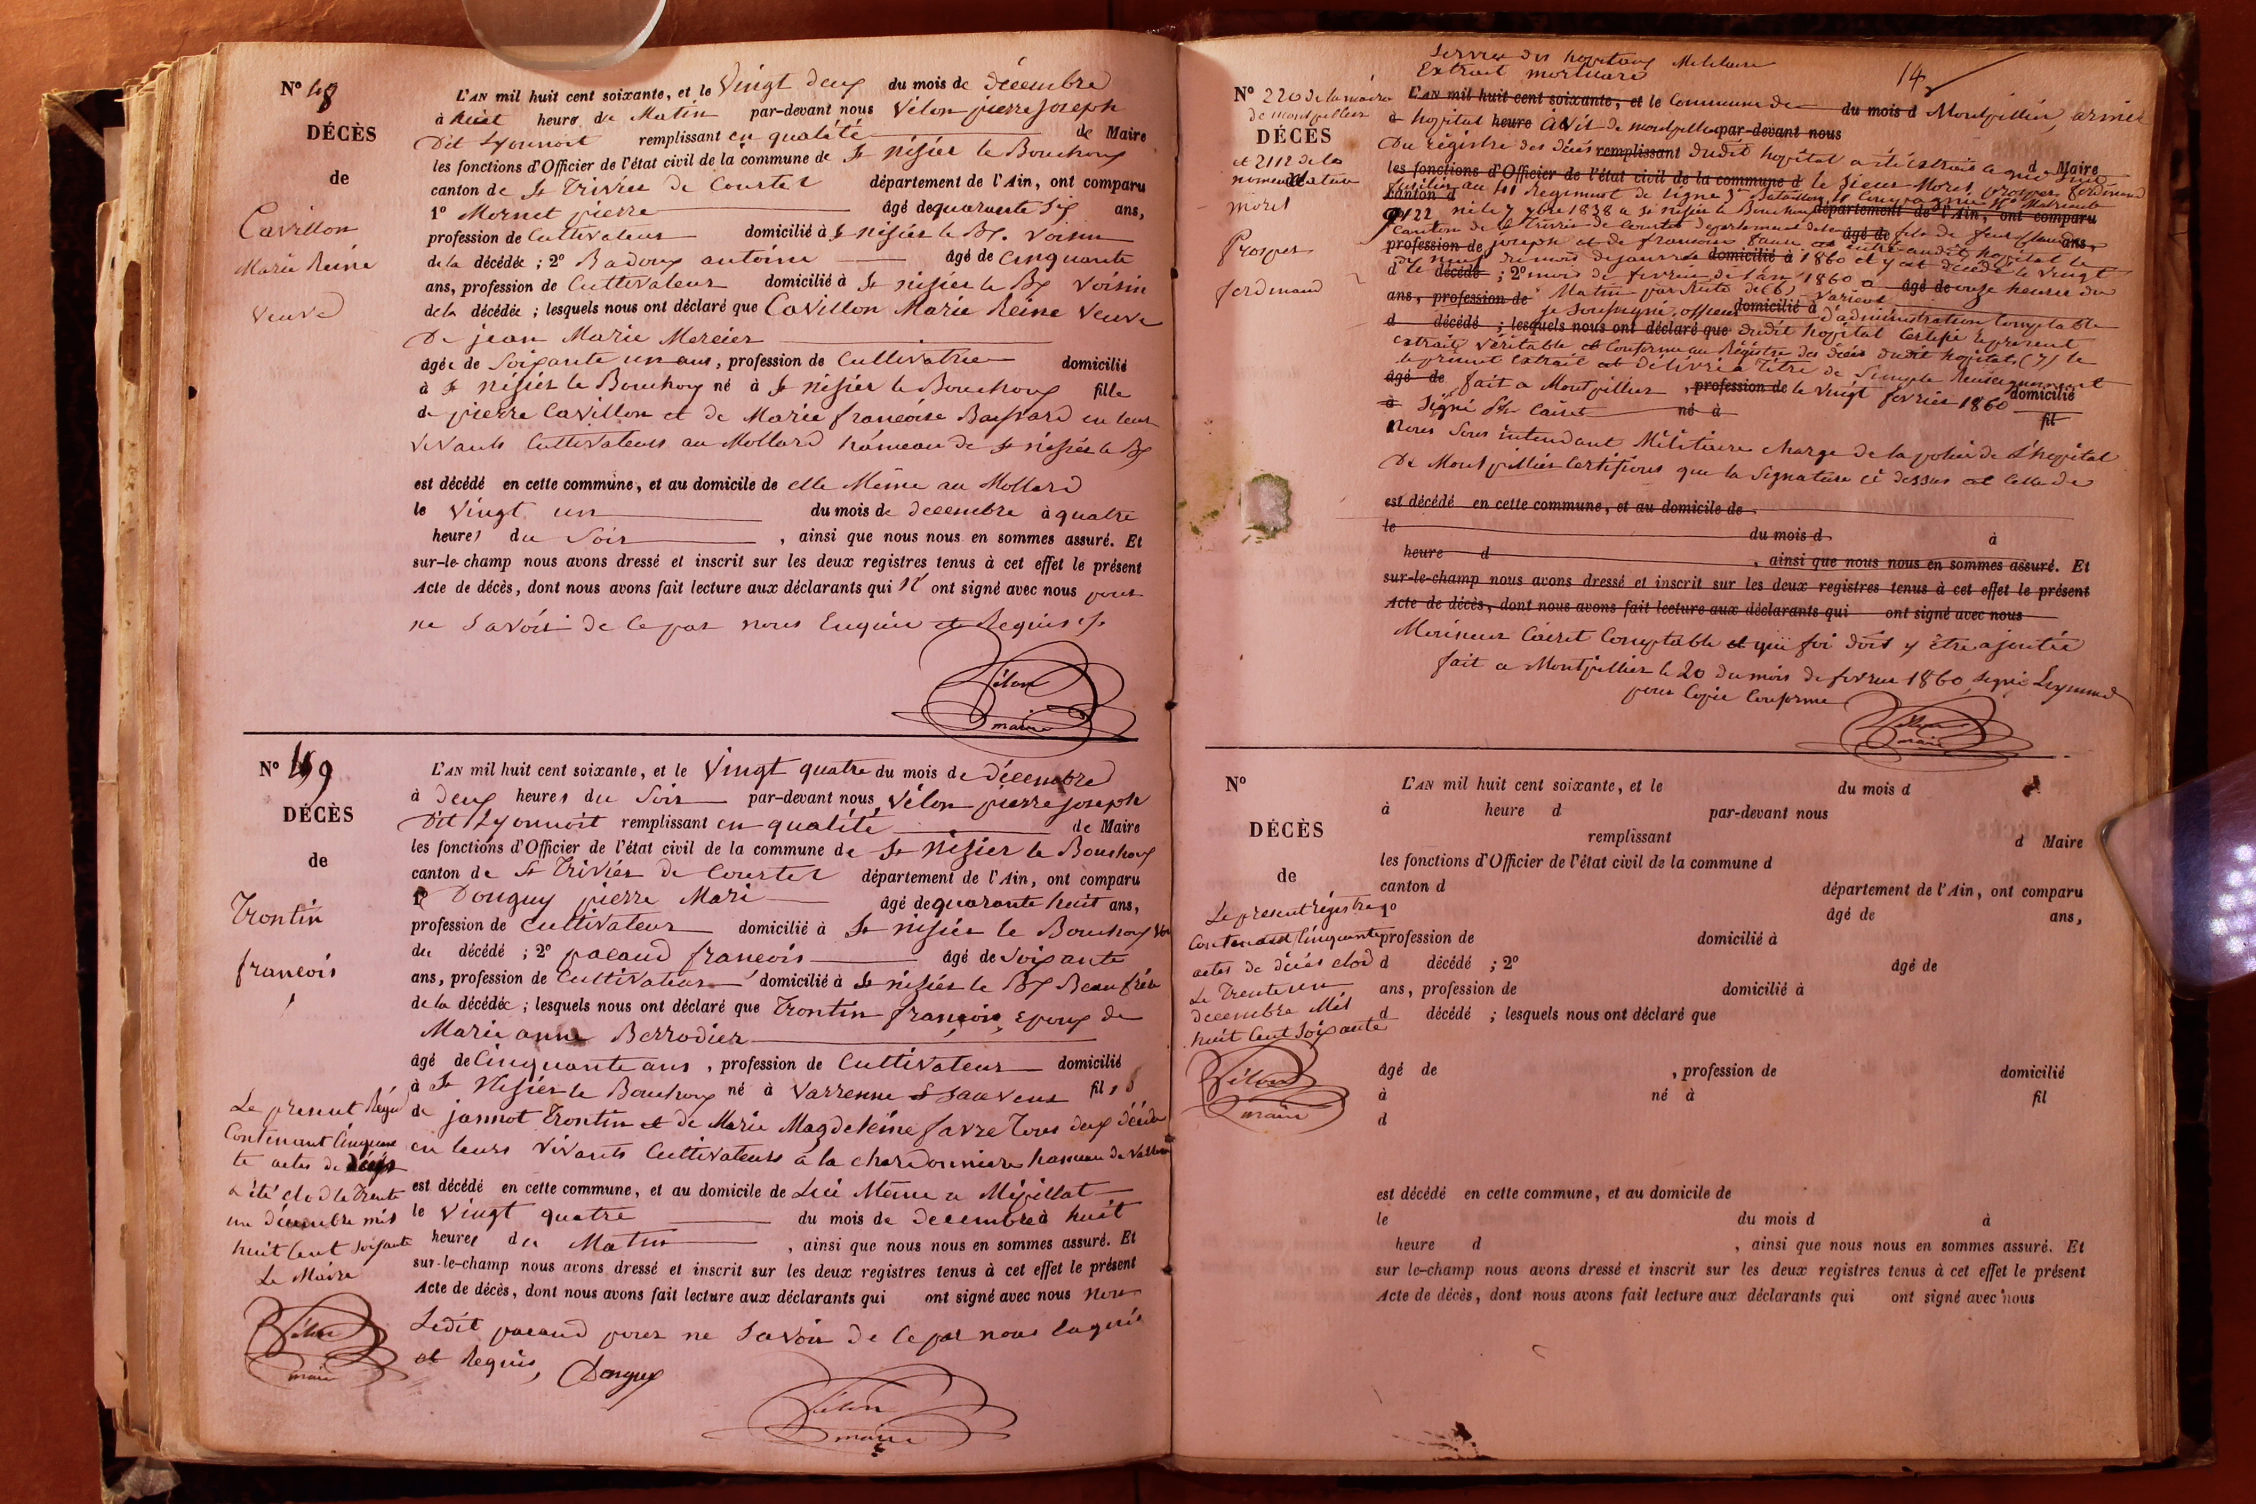 N° 48
DÉCÈS
de
Cavillon
Marie Reine
Veuve
L'AN mil huit cent soixante, et le Vingt deux du mois de décembre
à huit heure du Matin par-devant nous Vélon pierre joseph
Dit Lyonnoit remplissant en qualité de Maire
les fonctions d'Officier de l'état civil de la commune de St nisier le Bouchoux
canton de St Trivier de Courtes département de l'Ain, ont comparu
1° Mornet pierre âgé de quarante six ans,
profession de Cultivateur domicilié à St nisier le Bx. voisin
de la décédée ; 2° Badoux antoine âgé de Cinquante
ans, profession de Cultivateur domicilié à St nisier le Bx Voisin
de la décédée ; lesquels nous ont déclaré que Cavillon Marie Reine Veuve
De jean Marie Mercier
âgée de Soixante un ans, profession de Cultivatrice domicilié
à St nisier le Bouchoux né à St nisier le Bouchoux fille
de pierre Cavillon et de Marie francoise en leur
vivants Cultivateurs au Mollard hameau de St nisier le Bx
est décédé en cette commune, et au domicile de elle Même au Mollard
le Vingt un du mois de decembre à quatre
heures du Soir , ainsi que nous nous en sommes assuré. Et
sur-le-champ nous avons dressé et inscrit sur les deux registres tenus à cet effet le présent
Acte de décès, dont nous avons fait lecture aux déclarants qui N' ont signé avec nous pour
ne Savoir de Ce par nous Enquie et Requis
Vélon
maire
N° 49
DÉCÈS
de
Trontin
francois
L'AN mil huit cent soixante, et le Vingt quatre du mois de décembre
à deux heures du Soir par-devant nous Vélon pierre joseph
Dit Lyonnoit remplissant en qualité de Maire
les fonctions d'Officier de l'état civil de la commune de St Nisier le Bouchoux
canton de St Trivier de Courtes département de l'Ain, ont comparu
1° Donguy pierre Mari âgé de quarante huit ans,
profession de Cultivateur domicilié à St nisier le Bouchoux
du décédé ; 2° pacaud francois âgé de Soixante
ans, profession de Cultivateur domicilié à St nisier le Bx Beau frére
de la décédée ; lesquels nous ont déclaré que Trontin francois, Epoux de
Marie anne Berrodier
âgé de Cinquante ans, profession de Cultivateur domicilié
à St Nisier le Bouchoux né à Varrenne St Sauveur fils
de jannot Trontin et de Marie Magdeleine favre Tous deux
en leurs Vivants Cultivateurs à la chardonniere hameau de
est décédé en cette commune, et au domicile de Lui Même a Mizillat
le Vingt quatre du mois de decembre à huit
heures du Matin , ainsi que nous nous en sommes assuré. Et
sur-le-champ nous avons dressé et inscrit sur les deux registres tenus à cet effet le présent
Acte de décès, dont nous avons fait lecture aux déclarants qui ont signé avec nous non
Ledit pacaud pour ne Savoir de Ce par nous Enquis
et Requis, Donguy
Vélon
maire
Le present
Contenant Cinquan
te actes de décès
a été clos le Trente
un décembre mil
huit Cent Soixante
Le Maire
Vélon
maire
Service des hopitaux Militaire
Extrait mortuaire
14
N° 220 de la mairie
de montpellier
DÉCÈS
et 2112 de la
nomenclature
moret
Prosper
ferdinand
L'AN mil huit cent soixante, et le Commune de du mois d Montpellier,
à hopital heure de montpellier par-devant nous
Du régistre des décès remplissant dudit hopital a été extrait ce qui suit d Maire
les fonctions d'Officier de l'état civil de la commune d le Sieur Moret, prosper ferdinand
canton d fusilier au 41 Regiment de ligne 3 Bataillon
né le 7 1838 a St nisier le Bouchoux département de l'Ain, ont comparu
Canton de St Trivier de Courtes departement de l'ain âgé de fils de feu ans,
profession de joseph et de francoise domicilié à entré audit hopital le
d le décédé ; 2° mois de fevrier de l'an 1860 a âgé de onze heures du
ans, profession de Matin par Suite de (6) Variole
je Soussigné, officier domicilié à d'administration Comptable
d décédé ; lesquels nous ont déclaré que dudit hopital Certifie le présent
extrait Véritable et Conforme au Régistre des décés dudit hopital (7) le
le présent Extrait est délivré a Titre de Simple Renseignement
âgé de fait a Montpellier , profession de le Vingt fevrier 1860 domicilié
à Signé né à fil
Nous Sous intendant Militaire charge de la police de L'hopital
De Montpellier Certifions que la Signature ci dessus est Celle de
est décédé en cette commune, et au domicile de
le du mois d à
heure d , ainsi que nous nous en sommes assuré. Et
sur-le-champ nous avons dressé et inscrit sur les deux registres tenus à cet effet le présent
Acte de décès, dont nous avons fait lecture aux déclarants qui ont signé avec nous
Monsieur Comptable et que foi doit y être ajoutée
fait a Montpellier le 20 du mois de fevrier 1860 Signé
pour Copie Conforme
Vélon
maire
N°
DÉCÈS
de
Le present régistre
Contenant Cinquante
actes de décès clos
Le Trente un
decembre Mil
huit Cent Soixante
Vélon
maire
L'AN mil huit cent soixante, et le du mois d
à heure d par-devant nous
remplissant d Maire
les fonctions d'Officier de l'état civil de la commune d
canton d département de l'Ain, ont comparu
1° âgé de ans,
profession de domicilié à
d décédé ; 2° âgé de
ans, profession de domicilié à
d décédé ; lesquels nous ont déclaré que
âgé de , profession de domicilié
à né à fil
d
est décédé en cette commune, et au domicile de
le du mois d à
heure d , ainsi que nous nous en sommes assuré. Et
sur le-champ nous avons dressé et inscrit sur les deux registres tenus à cet effet le présent
Acte de décès, dont nous avons fait lecture aux déclarants qui ont signé avec nous